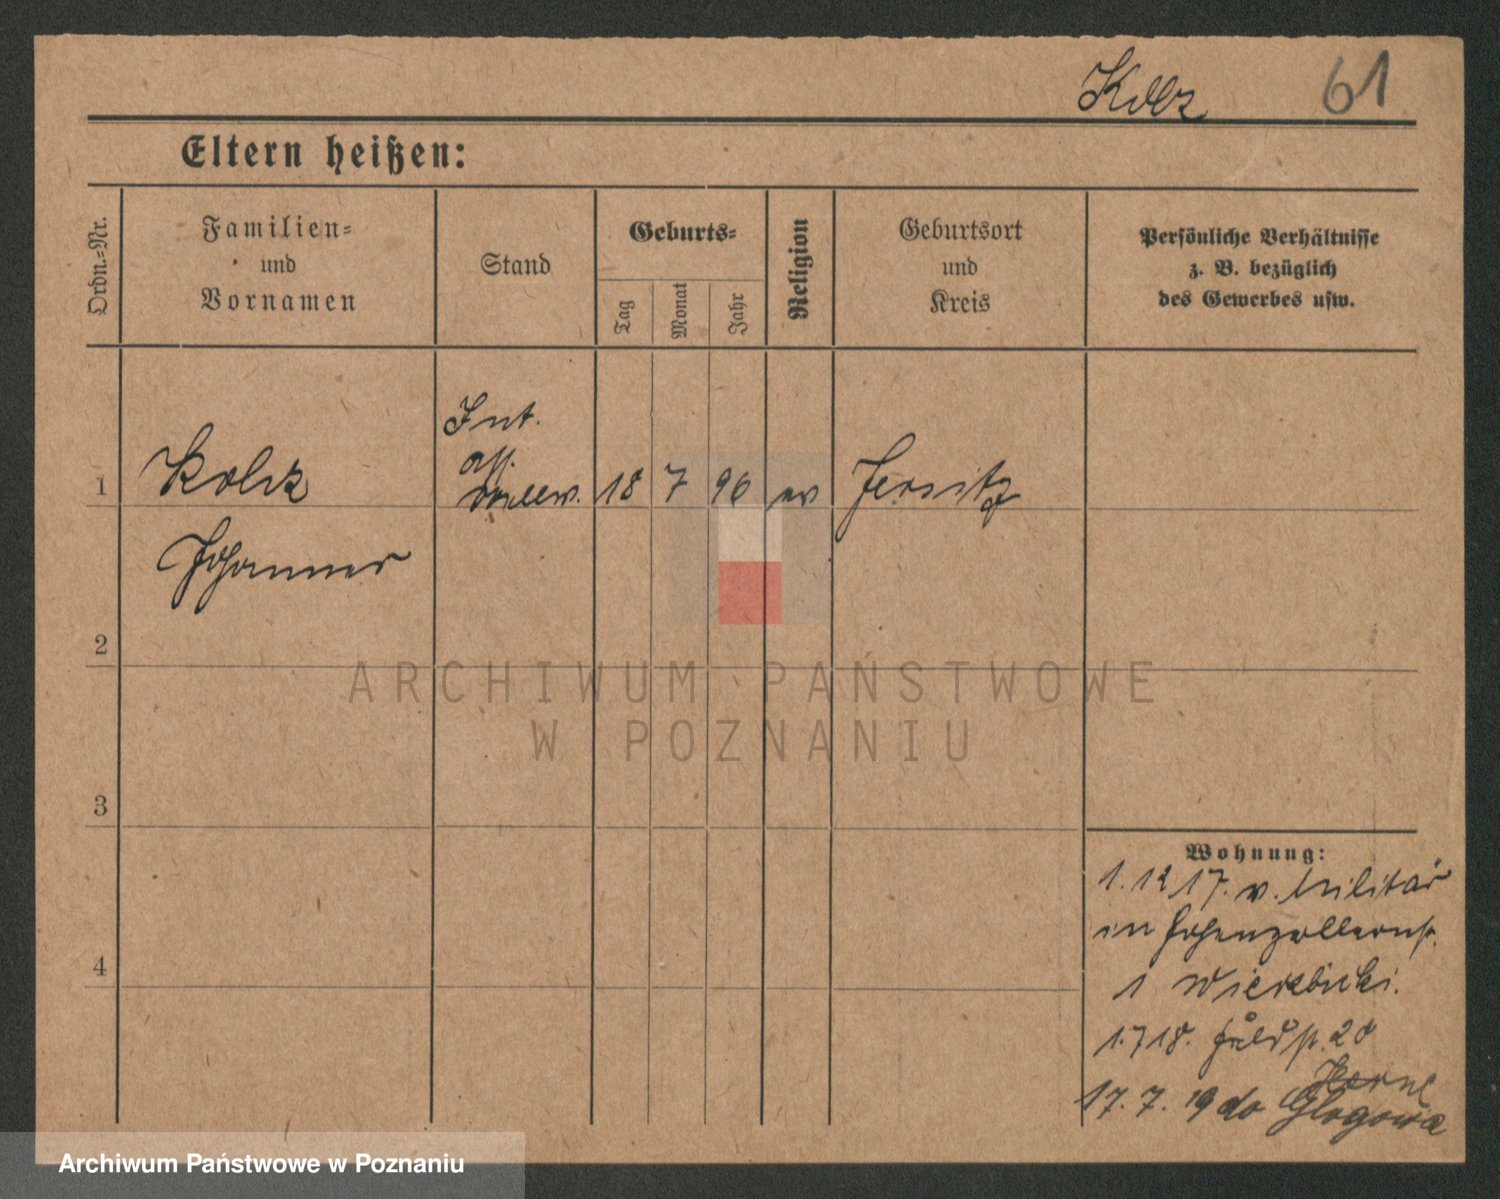 Kolz
61
Eltern heißen:
Ordn.-Nr.
Familien-
und
Vornamen
Stand
Geburts-
Tag
Monat
Jahr
Religion
Geburtsort
und
Kreis
Persönliche Verhältnisse
z. B. bezüglich
des Gewerbes usw.
Int.
1 18 7 96 ev Jersitz
Johannes
2
3
4
Wohnung:
1. 12 17. v. Militär
in Hohenzollernst.
1 Wierzbicki.
1. 7 18. st. 20
17. 7. 19 do Glogowa
ARCHIWUM PAŃSTWOWE
W POZNANIU
Archiwum Państwowe w Poznaniu